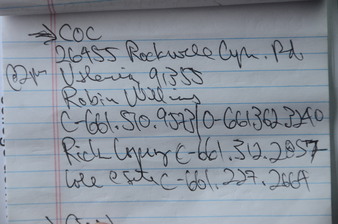 → COC
26455 Rockwell Cyn. Rd
@2pm Valencia 91355
Robin Williams
C-661.510.9523 O-661.362.3240
Rick C-661.312.2057
C-661.227.2664